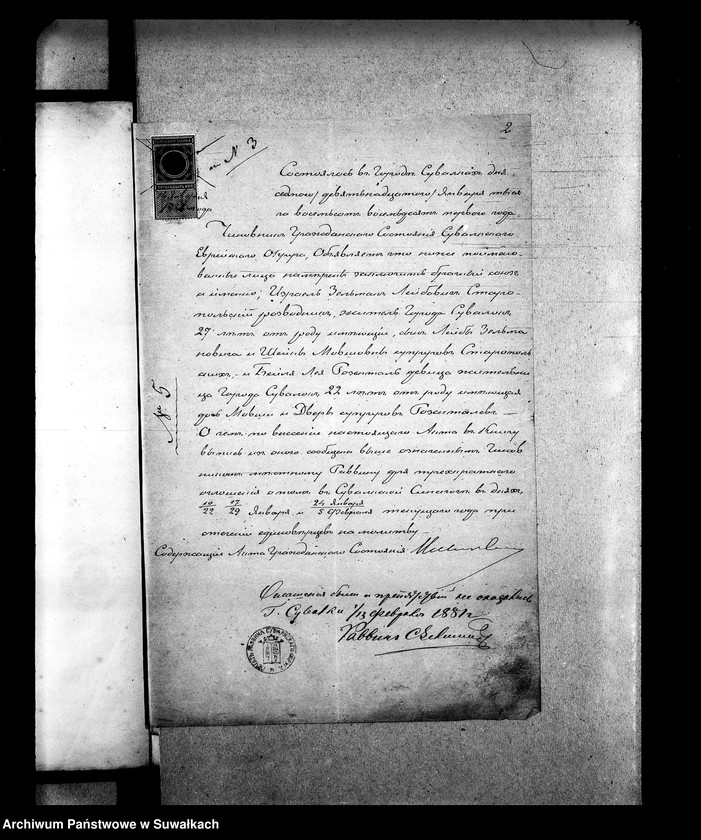 2
и N 3
Состоялось въ Городѣ Сувалкахъ дня
седьмаго /девятнадцатаго/ Января тысяча
восемьсотъ восемьдесятъ перваго года.
Чиновникъ Гражданскаго Состоянія Сувалскаго
Еврейскаго Округа, Объявляетъ что ниже поимено-
ванныя лица намѣрены заключить брачный союз
а именно; Израель Зельманъ Лейбовичъ Старо-
польскій разводникъ, житель Города Сувалокъ,
27 лѣтъ отъ роду имѣющій, сынъ Лейбы Зельма
новича и Шейны Мовшовны супруговъ Старополь
скихъ, и Бейля Лея Розенталь дѣвица жительни
ца Города Сувалокъ, 22 лѣтъ отъ роду имѣющая
дочь Мовши и Дверы супруговъ Розенталевъ. —
№ 5
О чемъ по внесеніи настоящаго Акта въ Книгу
выпись изъ онаго сообщена выше означеннымъ Чинов
никомъ мѣстному Раввину для трехкратнаго
оглашенія о томъ въ Сувалкской Синагогѣ въ дняхъ
10/22 17/29 Января и 24 Января/5 Февраля текущаго года при
стеченіи единовѣрцевъ на молитву —
Содержащій Акты Гражданскаго Состоянія
Оглашенія были и препятствій не оказалось
Г. Сувалки 1/13 Февраля 1881 г.
Раввинъ
Archiwum Państwowe w Suwałkach